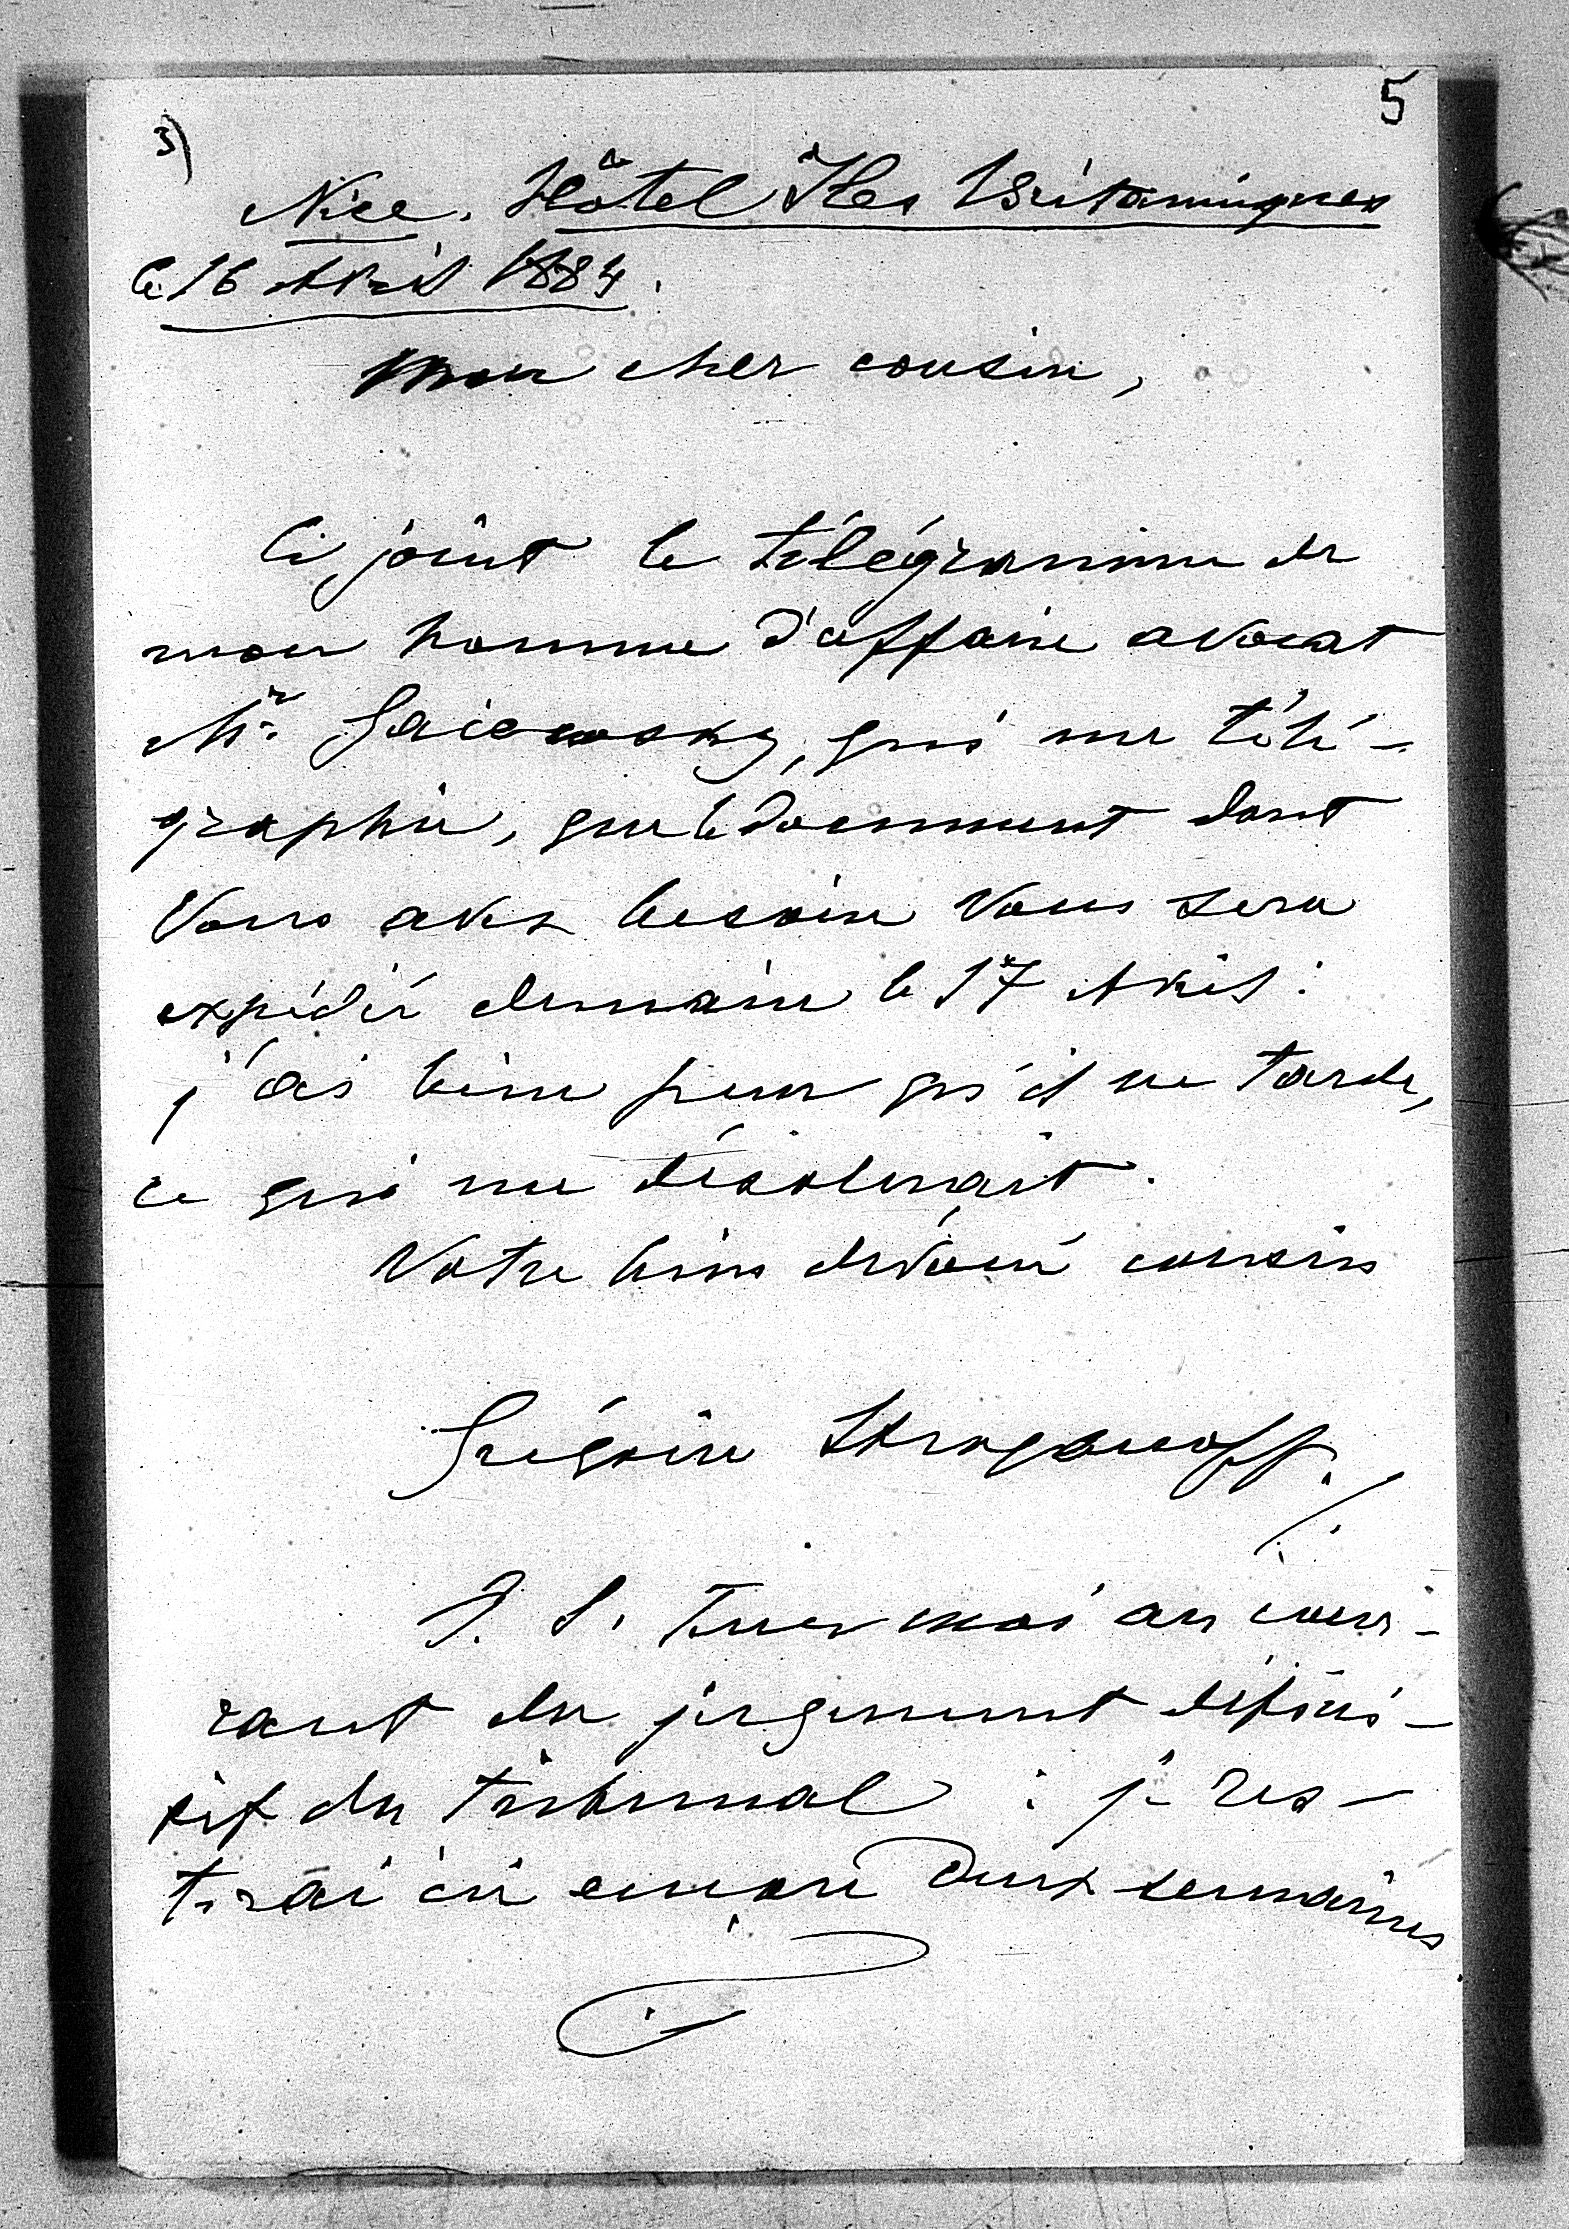 5
3)
Nice. Hôtel Iles Britanniques
le 16 Avril 1884.
Mon cher cousin,
Ci joint le télégramme de
mon homme d'affaire avocat
Mr. qui me télé-
graphie, que le document dont
Vous avez besoin Vous sera
expédié demain le 17 Avril:
j'ai bien peur qu'il ne tarde,
ce qui me désolerait.
Votre bien dévoué cousin
Grégoire Stroganoff.
P. S. Tenez moi au cou-
rant du jugement défini-
tif du tribunal: je res-
terai ici encore deux semaines